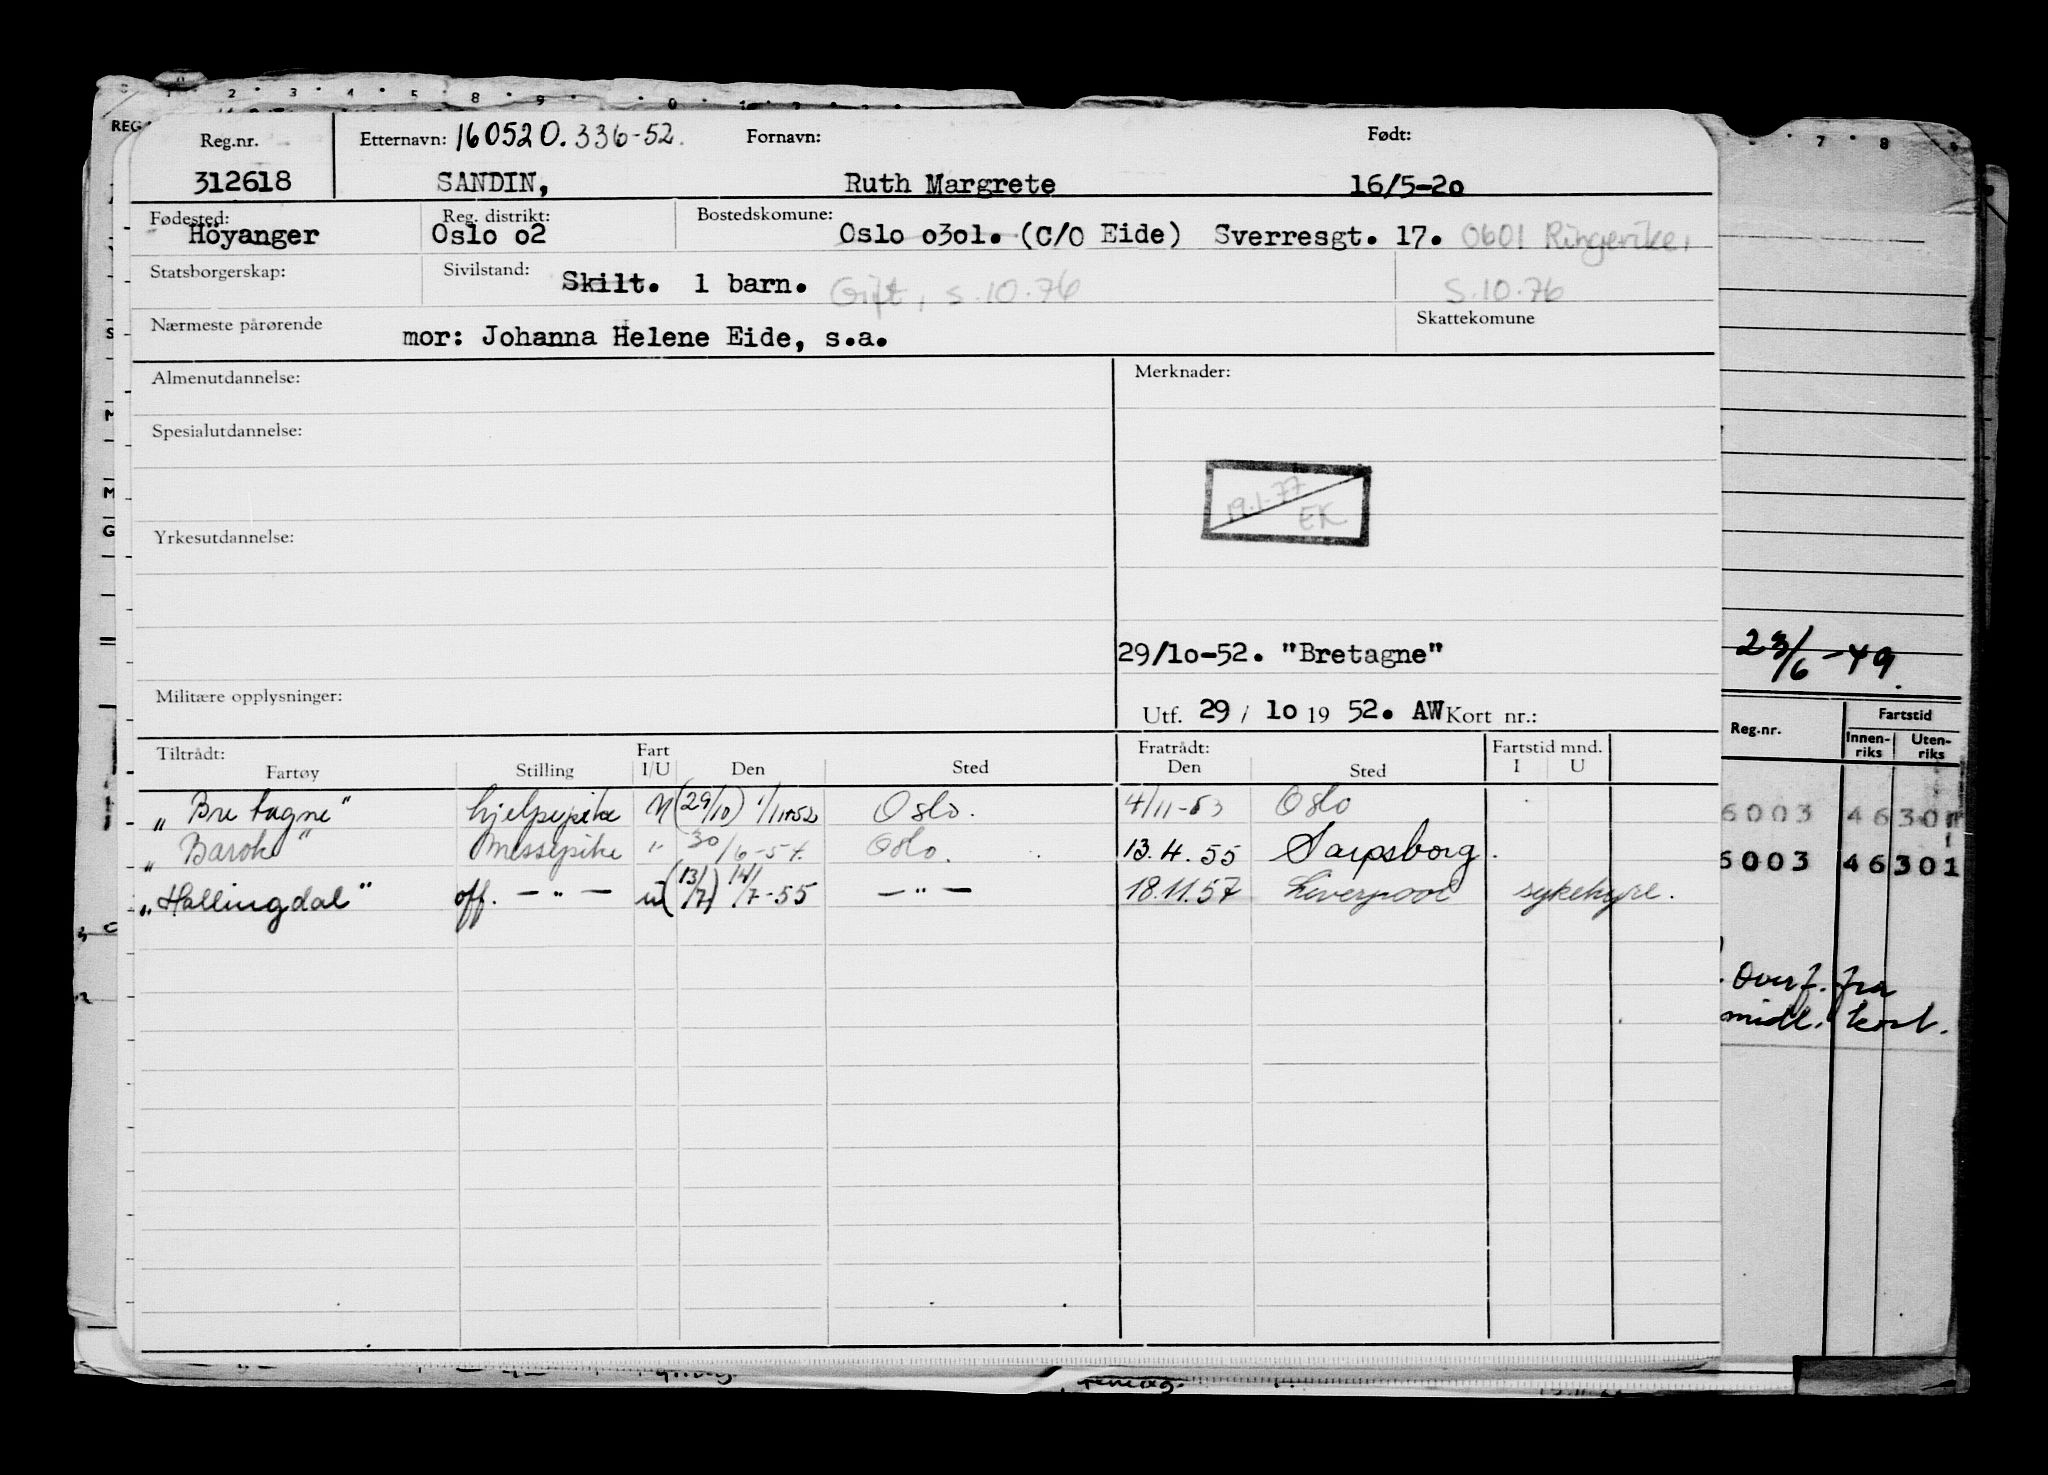 Reg.nr. Etternavn: 160520.336-52. Fornavn: Født:
312618 SANDIN, Ruth Margrete 16/5-2o
Fødested: Reg. distrikt: Bostedskomune:
Höyanger Oslo o2 Oslo o3ol. (C/O Eide) Sverresgt. 17. 0601 Ringerike,
Statsborgerskap: Sivilstand: Skilt. 1 barn. Gift, s.10.76 S.10.76
Nærmeste pårørende mor: Johanna Helene Eide, s.a. Skattekomune
Almenutdannelse: Merknader:
Spesialutdannelse:
19.1-77
EK
Yrkesutdannelse:
29/lo-52. "Bretagne"
Militære opplysninger:
Utf. 29 / lo 19 52. AW Kort nr.:
Tiltrådt: Fart Fratrådt: Fartstid mnd.
Fartøy Stilling I/U Den Sted Den Sted I U
„Bretagne" hjelpepike U (29/10) 1/11-52 Oslo. 4/11-53 Oslo
„Barok" messepike " 30/6-54. Oslo. 13.4.55 Sarpsborg.
„Hallingdal" off. — " — u (13/7) 14/7-55 — " — 18.11.57 Liverpool sykehyre.
23/6-49.
Reg.nr. Fartstid
Innen-riks Uten-riks
6003 46301
6003 46301
Overf. fra
midl. kort.